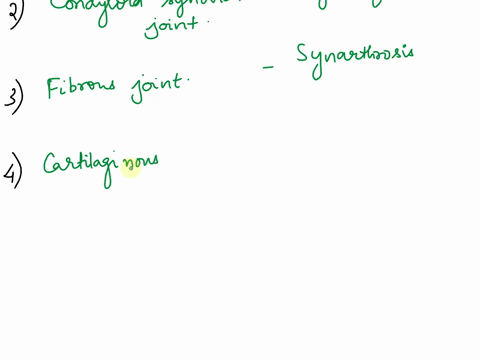 2) Condyloid
joint.
3) Fibrous joint. - Synarthrosis
4) Cartilaginous